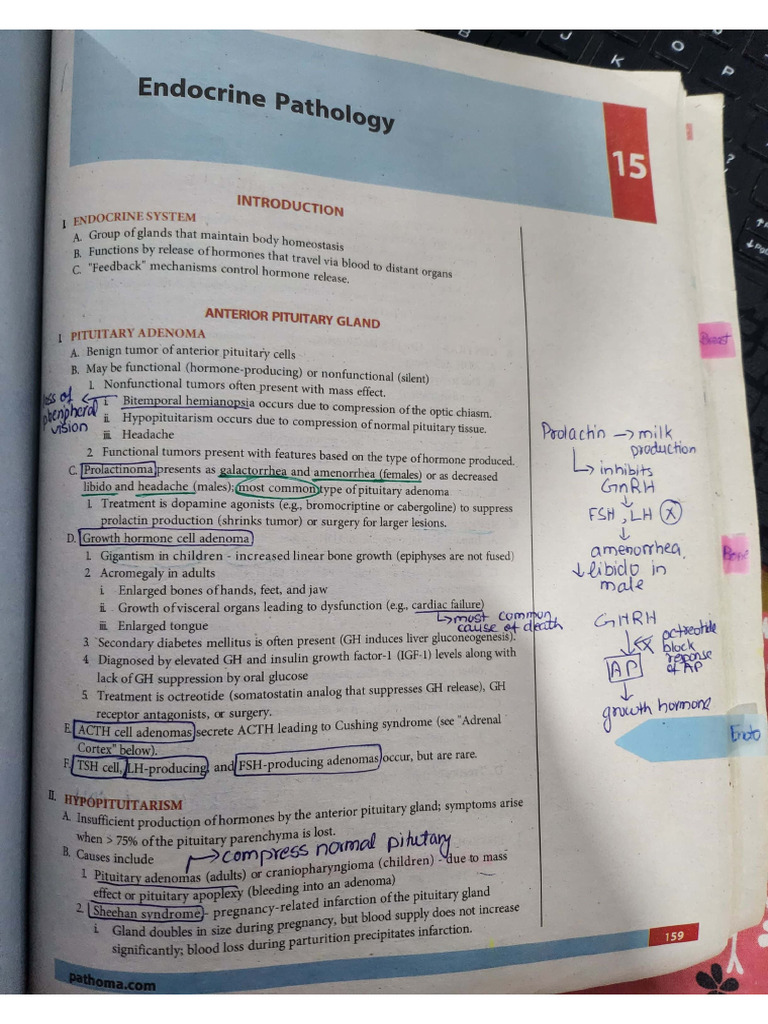 Endocrine Pathology
15
INTRODUCTION
I. ENDOCRINE SYSTEM
A. Group of glands that maintain body homeostasis
B. Functions by release of hormones that travel via blood to distant organs
C. "Feedback" mechanisms control hormone release.
ANTERIOR PITUITARY GLAND
I. PITUITARY ADENOMA
A. Benign tumor of anterior pituitary cells
B. May be functional (hormone-producing) or nonfunctional (silent)
1. Nonfunctional tumors often present with mass effect.
i. Bitemporal hemianopsia occurs due to compression of the optic chiasm.
ii. Hypopituitarism occurs due to compression of normal pituitary tissue.
iii. Headache
loss of
peripheral
vision
2. Functional tumors present with features based on the type of hormone produced.
C. Prolactinoma presents as galactorrhea and amenorrhea (females) or as decreased
libido and headache (males); most common type of pituitary adenoma
1. Treatment is dopamine agonists (e.g., bromocriptine or cabergoline) to suppress
prolactin production (shrinks tumor) or surgery for larger lesions.
D. Growth hormone cell adenoma
1. Gigantism in children - increased linear bone growth (epiphyses are not fused)
2. Acromegaly in adults
i. Enlarged bones of hands, feet, and jaw
ii. Growth of visceral organs leading to dysfunction (e.g., cardiac failure)
→ most common
cause of death
iii. Enlarged tongue
3. Secondary diabetes mellitus is often present (GH induces liver gluconeogenesis).
4. Diagnosed by elevated GH and insulin growth factor-1 (IGF-1) levels along with
lack of GH suppression by oral glucose
5. Treatment is octreotide (somatostatin analog that suppresses GH release), GH
receptor antagonists, or surgery.
E. ACTH cell adenomas secrete ACTH leading to Cushing syndrome (see "Adrenal
Cortex" below).
F. TSH cell, LH-producing, and FSH-producing adenomas occur, but are rare.
II. HYPOPITUITARISM
A. Insufficient production of hormones by the anterior pituitary gland; symptoms arise
when > 75% of the pituitary parenchyma is lost.
B. Causes include
→ compress normal pitutary
1. Pituitary adenomas (adults) or craniopharyngioma (children) - due to mass
effect or pituitary apoplexy (bleeding into an adenoma)
2. Sheehan syndrome - pregnancy-related infarction of the pituitary gland
i. Gland doubles in size during pregnancy, but blood supply does not increase
significantly; blood loss during parturition precipitates infarction.
Prolactin → milk
production
→ inhibits
GnRH
↓
FSH, LH X
↓
amenorrhea.
↓ libido in
male
GHRH
octreotide
block
response
of AP
AP
↓
growth hormone
Breast
Bone
Endo
159
pathoma.com